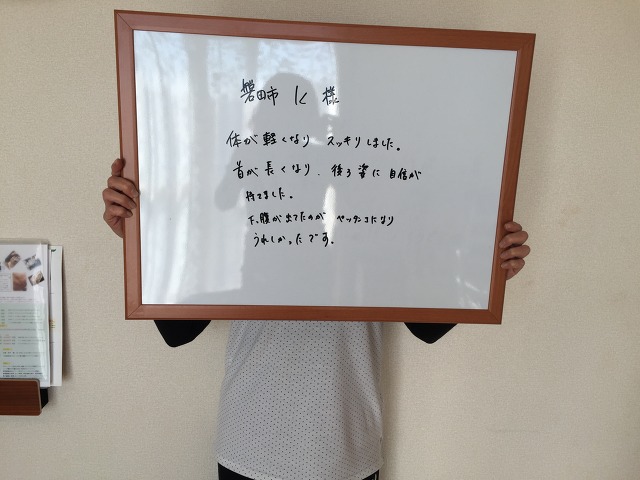 磐田市 K 様
体が軽くなり スッキリしました。
首が長くなり、後ろ姿に自信が
持てました。
下腹が出てたのが ペッタンコになり
うれしかったです。